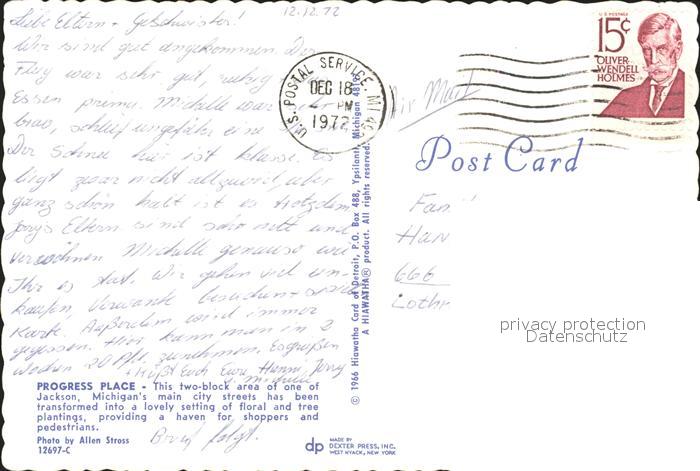 12.12.72
Liebe Eltern + Geschwister!
Wir sind gut angekommen. Der
Flug war sehr gut, ruhig
Essen prima. Michelle war sehr
brav, schlief ungefähr eine
Der Schnee hier ist klasse. Es
liegt zwar nicht allzuviel, aber
ganz schön kalt ist es trotzdem.
Jerrys Eltern sind sehr nett und
verwöhnen Michelle genauso wie
Ihr es tat. Wir gehen viel ein-
kaufen, Verwante besuchen +
Karte. Außerdem wird immer
gegessen. Hier kann man in 2
Wochen 20 Pfd. zunehmen. Es grüßen
+ küßt Euch Eure Hanni, Jerry
+ Michelle
Brief folgt.
PROGRESS PLACE - This two-block area of one of
Jackson, Michigan's main city streets has been
transformed into a lovely setting of floral and tree
plantings, providing a haven for shoppers and
pedestrians.
Photo by Allen Stross
12697-C
© 1966 Hiawatha Card of Detroit, P.O. Box 488, Ypsilanti, Michigan 48197
A HIAWATHA® product. All rights reserved.
dp
MADE BY
DEXTER PRESS, INC.
WEST NYACK, NEW YORK
U.S. POSTAL SERVICE, MI
DEC 18
PM
1972
Air Mail
U.S. POSTAGE
15¢
OLIVER
WENDELL
HOLMES
Post Card
Fam
Han
666
Lothr
privacy protection
Datenschutz